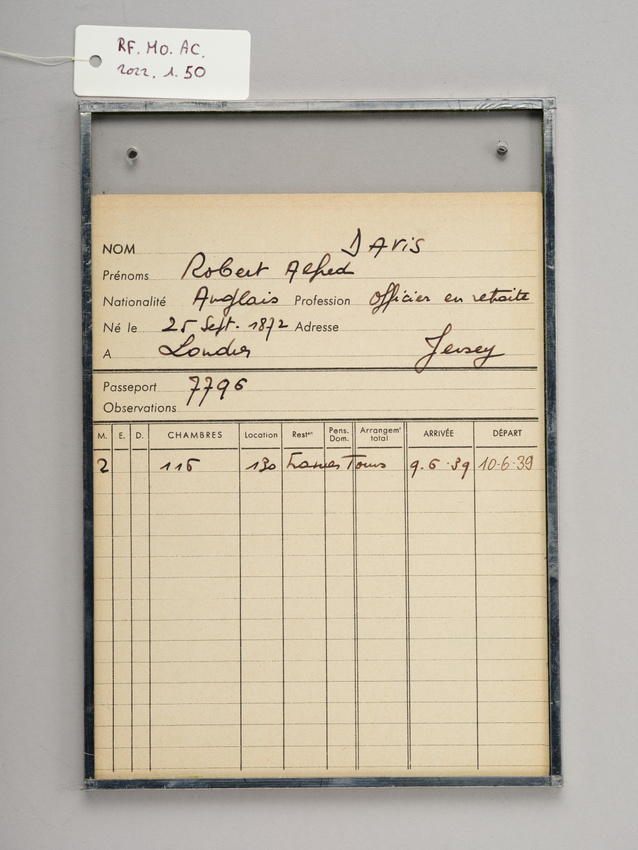 RF. MO. AC.
2022. 1. 50
NOM DAVIS
Prénoms Robert Alfred
Nationalité Anglais Profession Officier en retraite
Né le 25 Sept. 1872 Adresse
A Londres Jersey
Passeport 7796
Observations
M. E. D. CHAMBRES Location Restᵒⁿ Pens. Dom. Arrangemᵗ total ARRIVÉE DÉPART
2 116 130 Tours 9.6.39 10-6-39